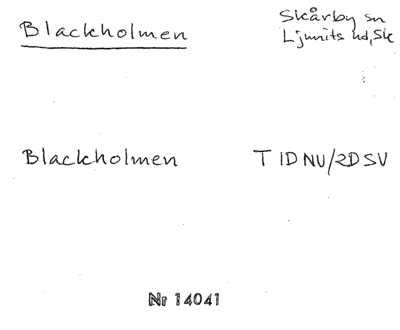 Blackholmen
Skårby sn
Ljunits hd, Sk
Blackholmen
T 1D NV/2D SV
Nr 14041